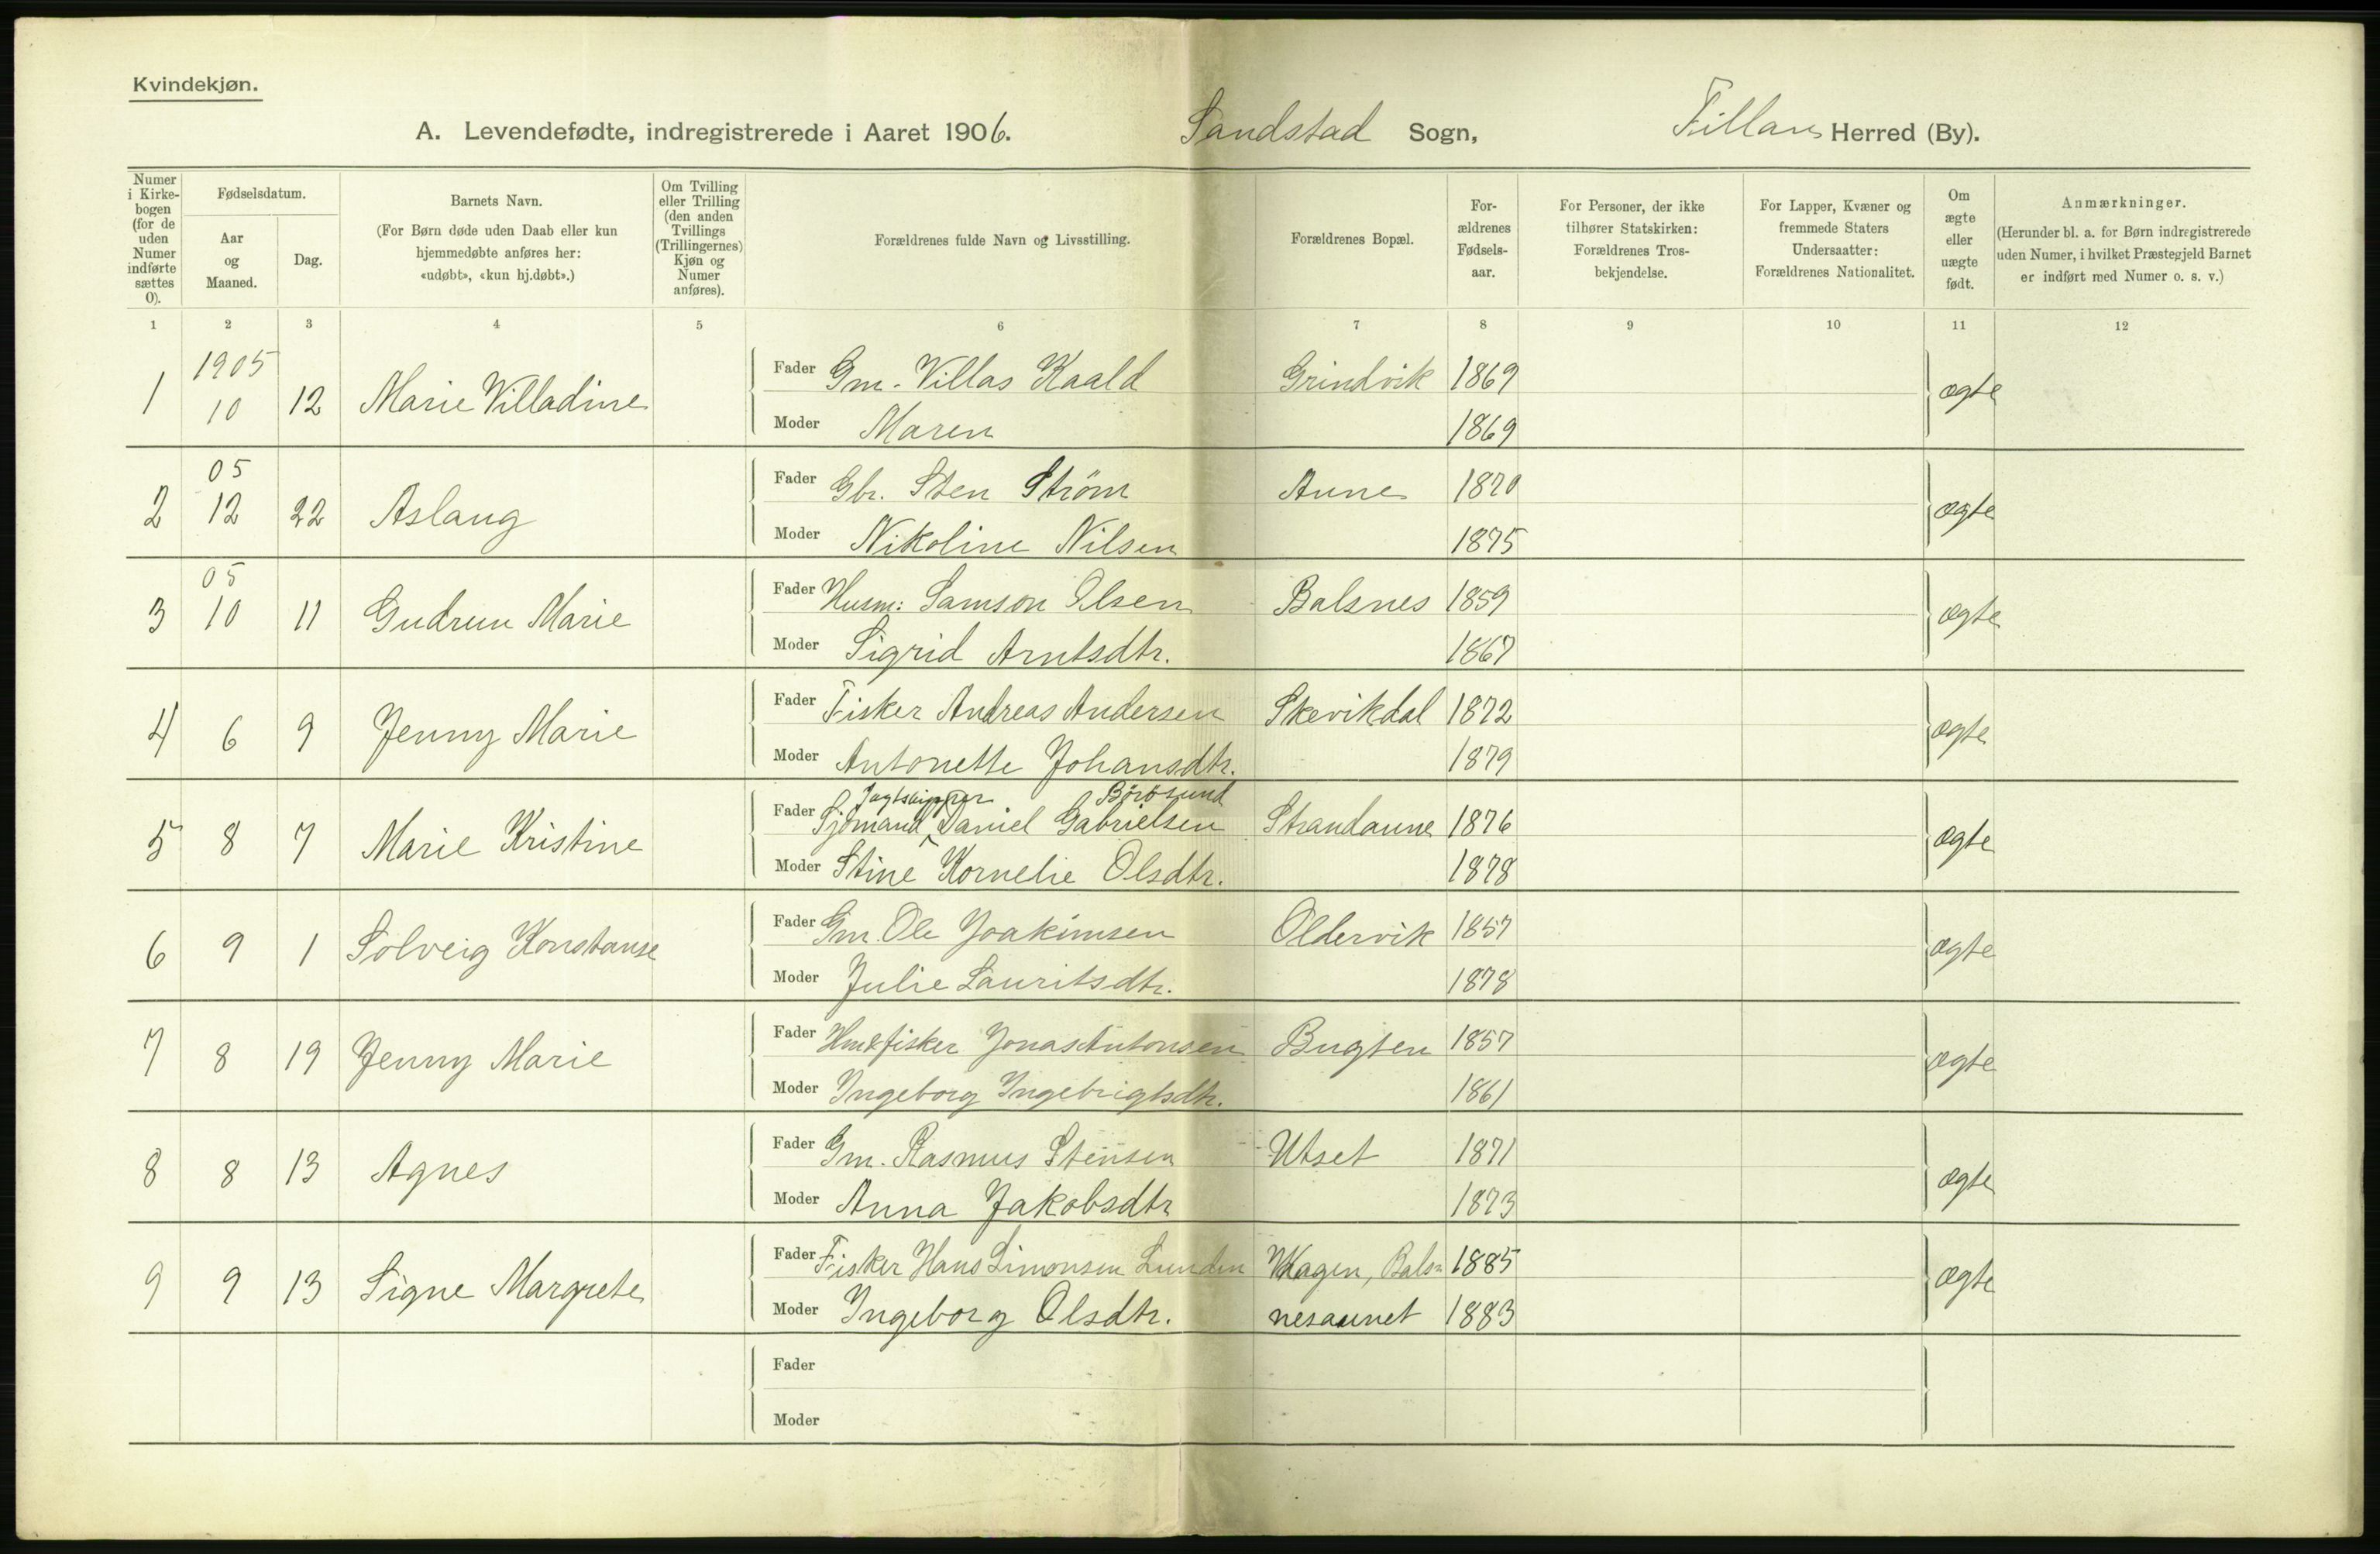 Kvindekjøn.
A. Levendefødte, indregistrerede i Aaret 1906. Sandstad Sogn, Fillan Herred (By).
Numer i Kirkebogen (for de uden Numer indførte sættes 0).
Fødselsdatum.
Aar og Maaned.
Dag.
Barnets Navn.
(For Børn døde uden Daab eller kun hjemmedøbte anføres her: «udøbt», «kun hj.døbt».)
Om Tvilling eller Trilling (den anden Tvillings (Trillingernes) Kjøn og Numer anføres).
Forældrenes fulde Navn og Livsstilling.
Forældrenes Bopæl.
Forældrenes Fødselsaar.
For Personer, der ikke tilhører Statskirken: Forældrenes Trosbekjendelse.
For Lapper, Kvæner og fremmede Staters Undersaatter: Forældrenes Nationalitet.
Om ægte eller uægte født.
Anmærkninger.
(Herunder bl. a. for Børn indregistrerede uden Numer, i hvilket Præstegjeld Barnet er indført med Numer o. s. v.)
1 2 3 4 5 6 7 8 9 10 11 12
1 1905 10 12 Marie Villadine Fader Gm. Villas Kaald Grindvik 1869 ægte
Moder Maren 1869
2 05 12 22 Aslaug Fader Gbr. Sten Ström Aune 1870 ægte
Moder Nikoline Nilsen 1875
3 05 10 11 Gudrun Marie Fader Husm: Samson Olsen Balsnes 1859 ægte
Moder Sigrid Arntsdtr. 1867
4 6 9 Jenny Marie Fader Fisker Andreas Andersen Skevikdal 1872 ægte
Moder Antonette Johansdtr. 1879
Jagtskipper Börösund
5 8 7 Marie Kristine Fader Sjömand Daniel Gabrielsen Strandaune 1876 ægte
Moder Stine Kornelie Olsdtr. 1878
6 9 1 Solveig Konstanse Fader Gm. Ole Joakimsen Oldervik 1857 ægte
Moder Julie Lauritsdtr. 1878
7 8 19 Jenny Marie Fader Hm & fisker Jonas Antonsen Bugten 1857 ægte
Moder Ingeborg Ingebrigtsdtr. 1861
8 8 13 Agnes Fader Gm. Rasmus Stensen Utset 1871 ægte
Moder Anna Jakobsdtr 1873
9 9 13 Signe Margrete Fader Fisker Hans Simonsen Lunden Hagen, Bals= 1885 ægte
Moder Ingeborg Olsdtr. nesaunet 1883
Fader
Moder